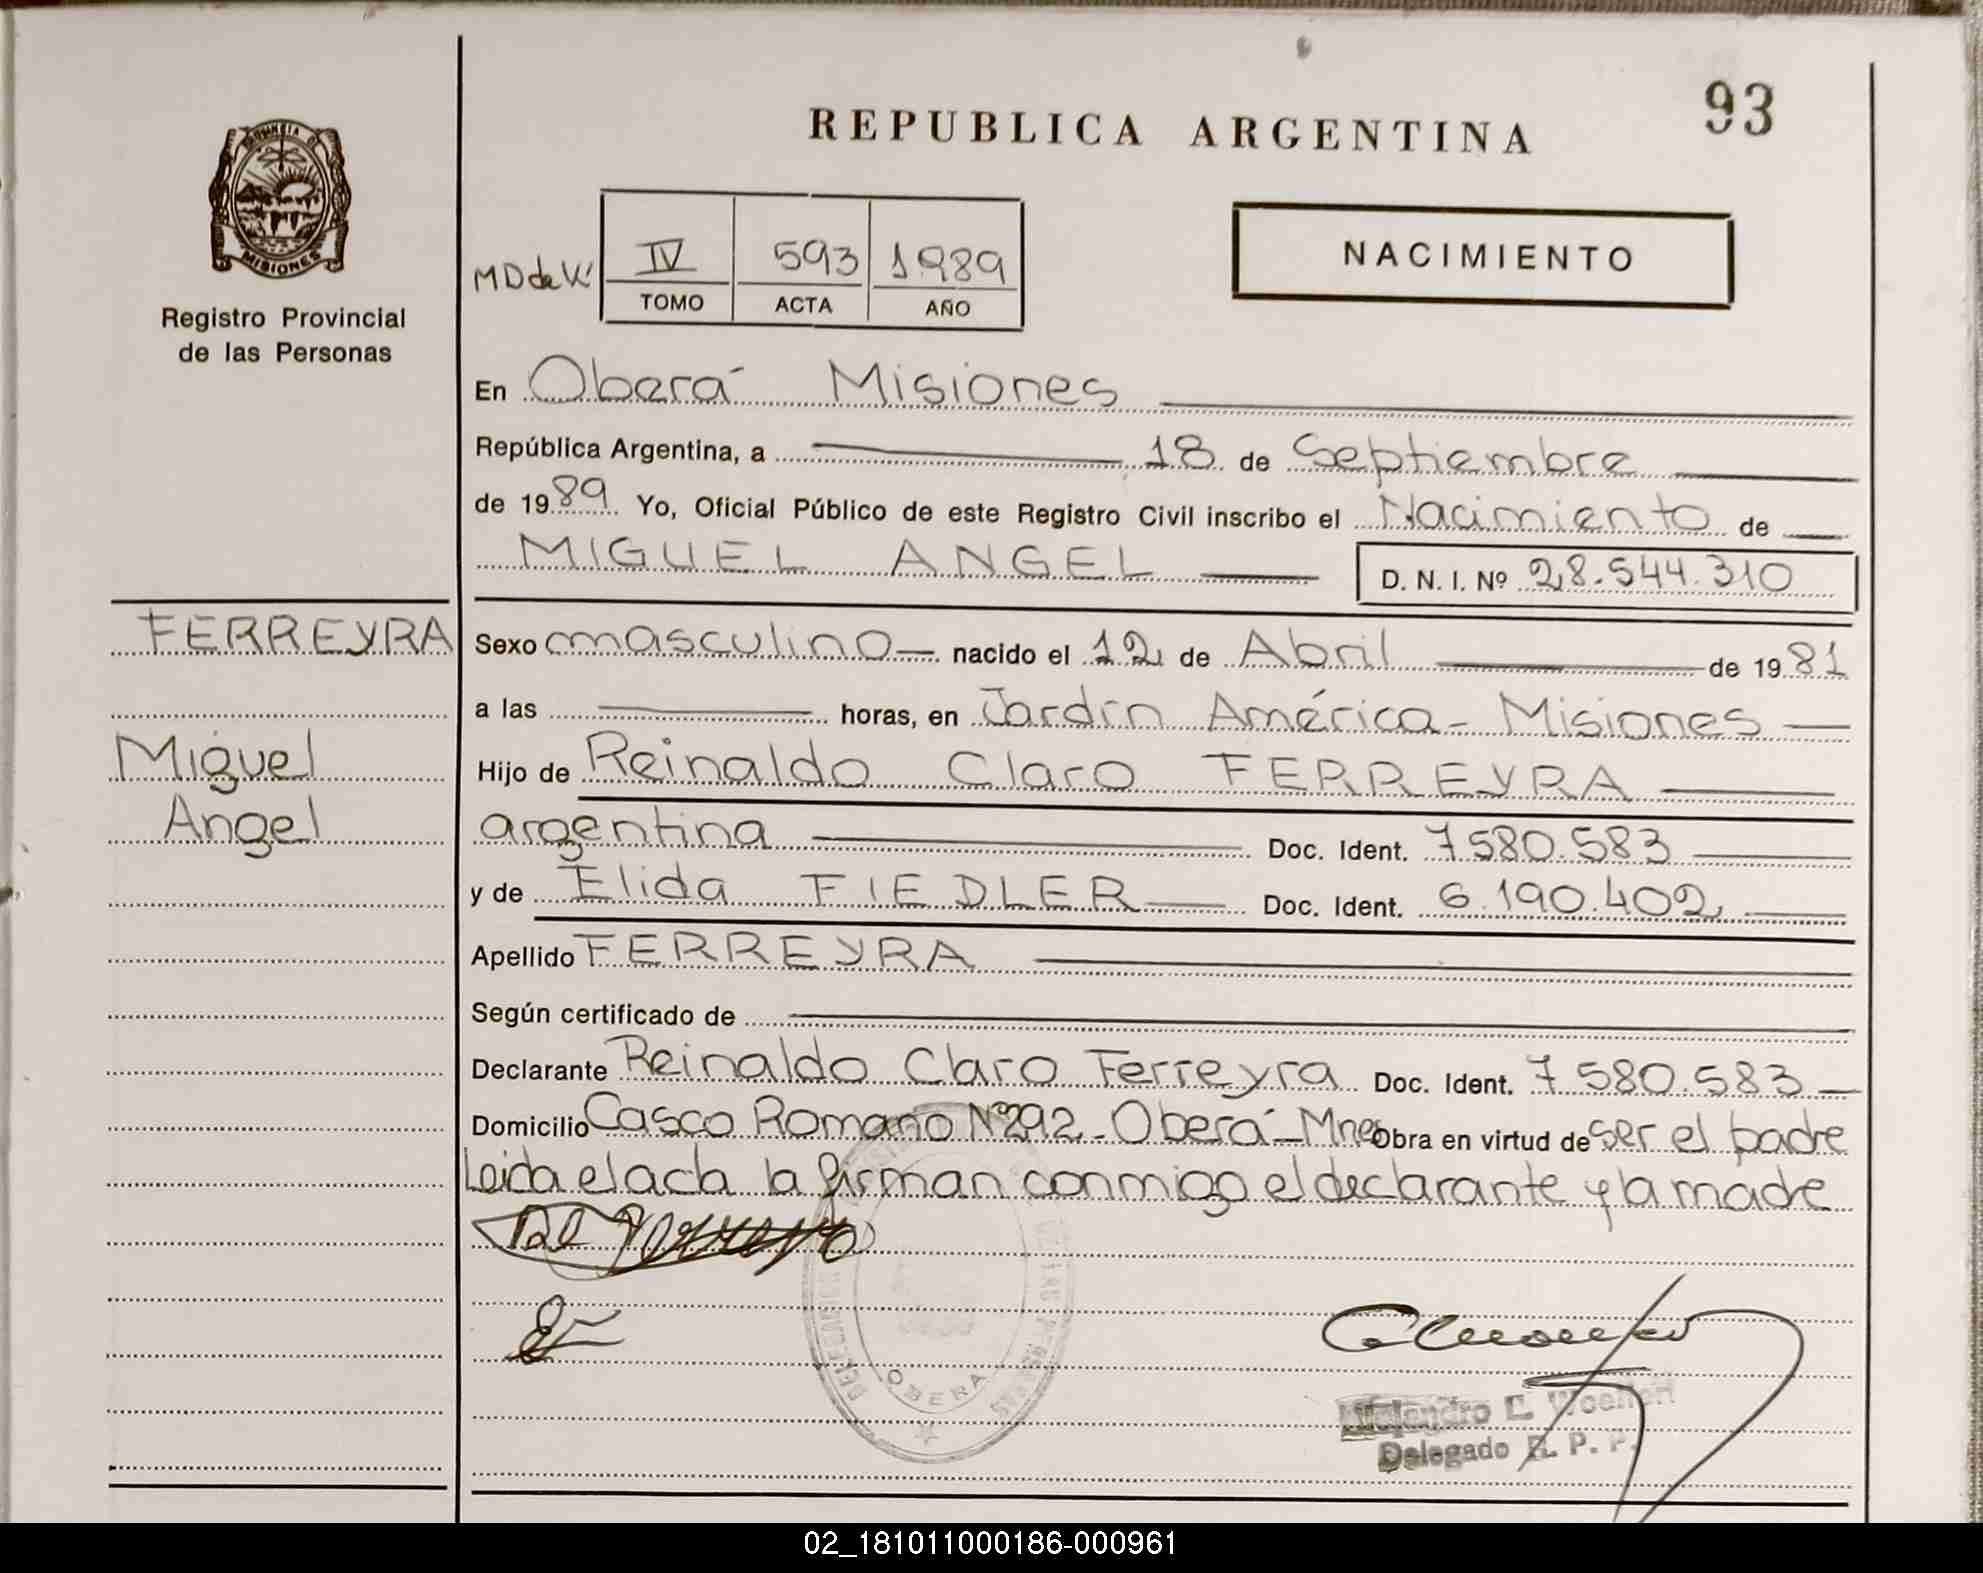 93
REPUBLICA ARGENTINA
PROVINCIA DE
MISIONES
Registro Provincial
de las Personas
NACIMIENTO
IV 593 1989
TOMO ACTA AÑO
En Oberá Misiones
República Argentina, a 18 de Septiembre
de 1989 Yo, Oficial Público de este Registro Civil inscribo el Nacimiento de
MIGUEL ANGEL D. N. I. Nº 28.544.310
FERREYRA
Miguel
Angel
Sexo masculino nacido el 12 de Abril de 1981
a las horas, en Jardín América - Misiones
Hijo de Reinaldo Claro FERREYRA
argentina Doc. Ident. 7.580.583
y de Elida FIEDLER Doc. Ident. 6.190.402
Apellido FERREYRA
Según certificado de
Declarante Reinaldo Claro Ferreyra Doc. Ident. 7.580.583
Domicilio Casco Romano Nº 292 - Oberá - Mnes Obra en virtud de ser el padre
Leida el acta la firman conmigo el declarante y la madre
OBERA
Delegado R. P. P.
02_181011000186-000961